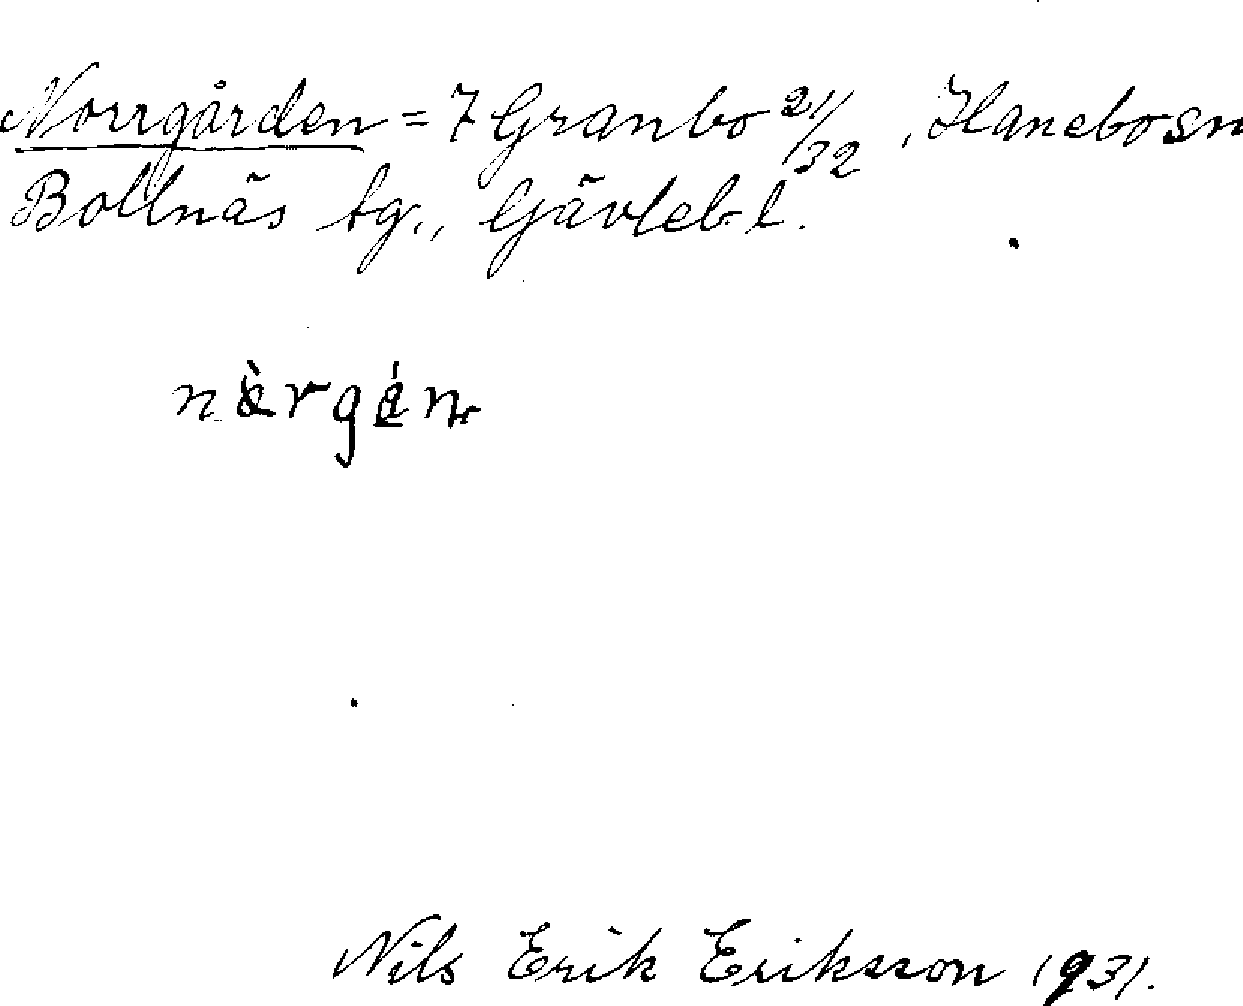 Norrgården = 7 Granbo 21/32, Hanebo sn
Bollnäs tg., Gävlebl.
Nils Erik Eriksson 1931.